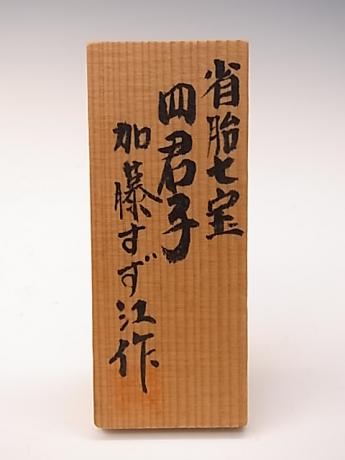 省胎七宝
四君子
加藤すず江作